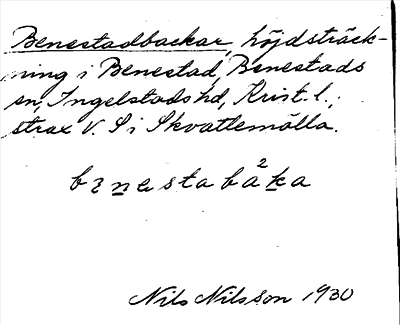 Benestadbackar, höjdsträck-
ning i Benestad, Benestads
sn, Ingelstads hd, Krist. l.,
strax V. S i Skvattemölla.
2
Nils Nilsson 1930